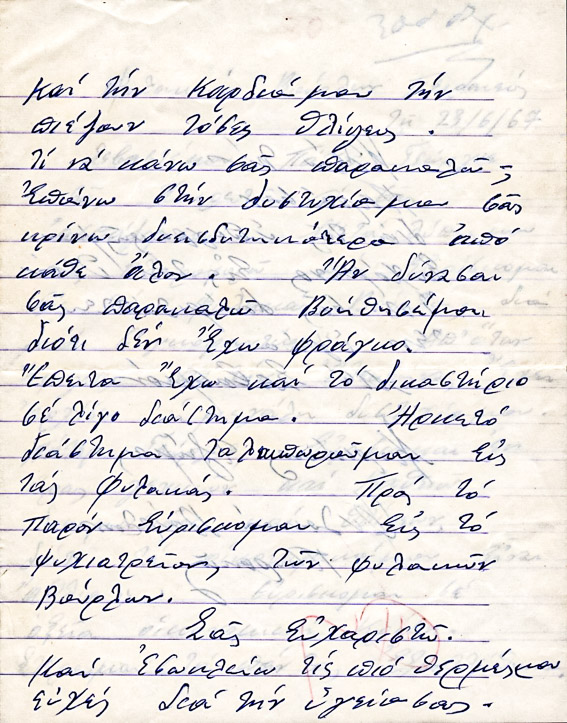 300 δρχ.
Καί τήν Καρδιά μου τήν
πιέζουν τόσες θλίψεις.
Τί νά κάνω σᾶς παρακαλῶ;
Ἐπάνω στήν δυστυχία μου σᾶς
κρίνω διεισδυτικότερο ἀπό
κάθε ἄλον. Ἄν δύνασαι
σᾶς παρακαλῶ Βοήθησέμαι
διότι δέν Ἔχω φράγκο.
Ἔπειτα Ἔχω καί τό δικαστήριο
σέ λίγο διάστημα. Ἀρκετό
διάστημα ταλαιπωροῦμαι Εἰς
τάς φυλακάς. Πρός τό
παρόν Εὑρίσκομαι Εἰς τό
ψυχιατρεῖον, τῶν φυλακῶν
Βούρλων.
Σᾶς Εὐχαριστῶ.
Καί Ἐσωκλείω τίς πιό θερμές μου
εὐχές διά τήν ὑγεία σας.